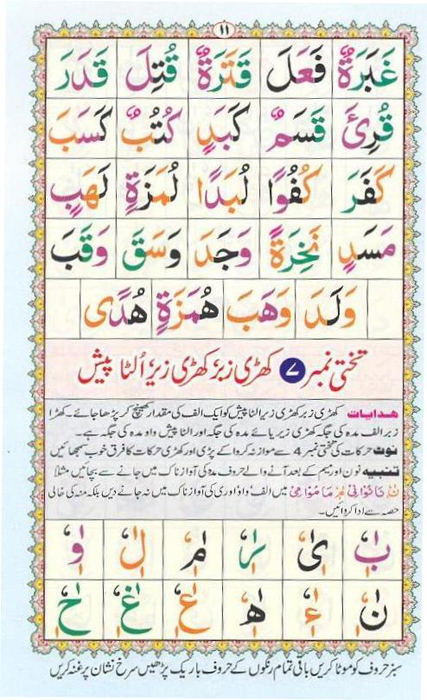 ۱۱
غَبَرَةٌ فَعَلَ قَتَرَةٌ قُتِلَ قَدَرَ
قُرِئَ قَسَمٌ كَبَدٍ كُتُبٌ كَسَبَ
كَفَرَ كُفُوًا لُبَدًا لُمَزَةٍ لَهَبٍ
مَسَدٍ نَخِرَةً وَجَدَ وَسَقَ وَقَبَ
وَلَدَ وَهَبَ هُمَزَةٍ هُدًى
تختی نمبر ۷ کھڑی زبر کھڑی زیر اُلٹا پیش
هدایات کھڑی زبر کھڑی زیر الٹا پیش کو ایک الف کی مقدار کھینچ کر پڑھا جائے۔ کھڑا
زبر الف مدہ کی جگہ کھڑی زیر یائے مدہ کی جگہ اور الٹا پیش واو مدہ کی جگہ ہے۔
نوٹ حرکات کی تختی نمبر 4 سے موازنہ کروا کے پڑی اور کھڑی حرکات کا فرق خوب سمجھائیں
تنبیہ نون اور میم کے بعد آنے والے حروف مدہ کی آواز ناک میں جانے سے بچائیں مثلاً
میں الف، واؤ اور ی کی آواز ناک میں نہ جانے دیں بلکہ منہ کی خالی
حصہ سے ادا کروائیں۔
بٰ یٰ رٰ مٰ لٰ وٰ
نٰ ءٰ هٰ عٰ غٰ حٰ
سبز حروف کو موٹا کریں باقی تمام رنگوں کے حروف باریک پڑھیں سرخ نشان پر غنہ کریں